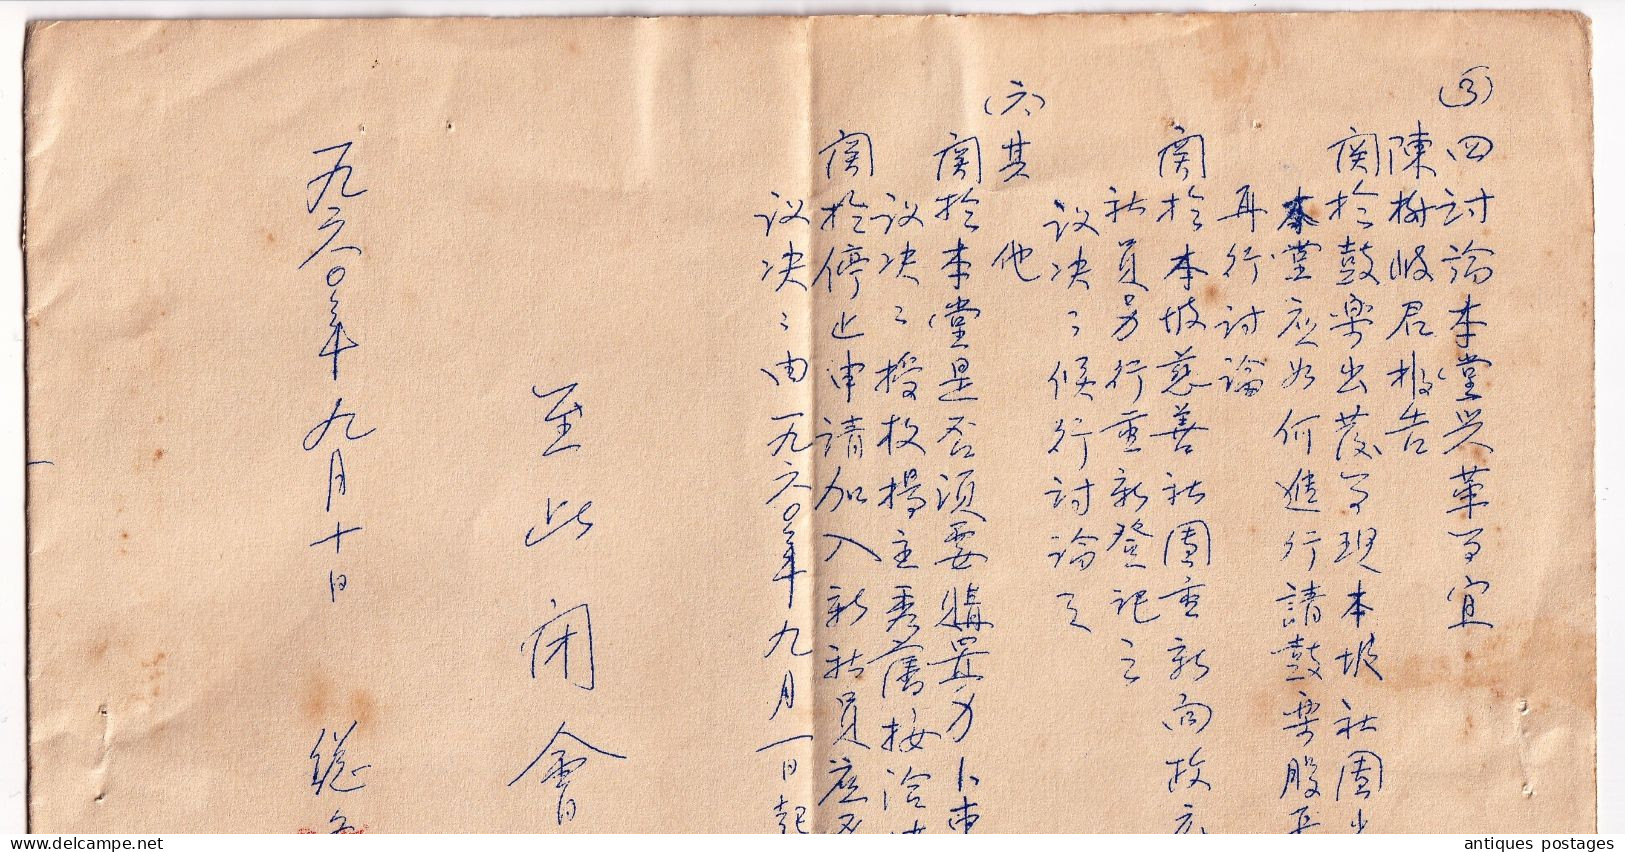 (3)
四討論本堂兴革事宜
陳梅岐君报告
関於鼓樂出發事現本坡社團
本堂應如何進行請鼓樂股
再行討論
関於本坡慈善社團重新向政
社員另行重新登記之
议决：候行討論之
(六)其他
関於本堂是否須要購置另
议决：授权楊主秀 接洽
関於停止申請加入新社員應
议决：由一九六〇年九月一日起
至此闭會
一九六〇年九月十日 總
antiques postages